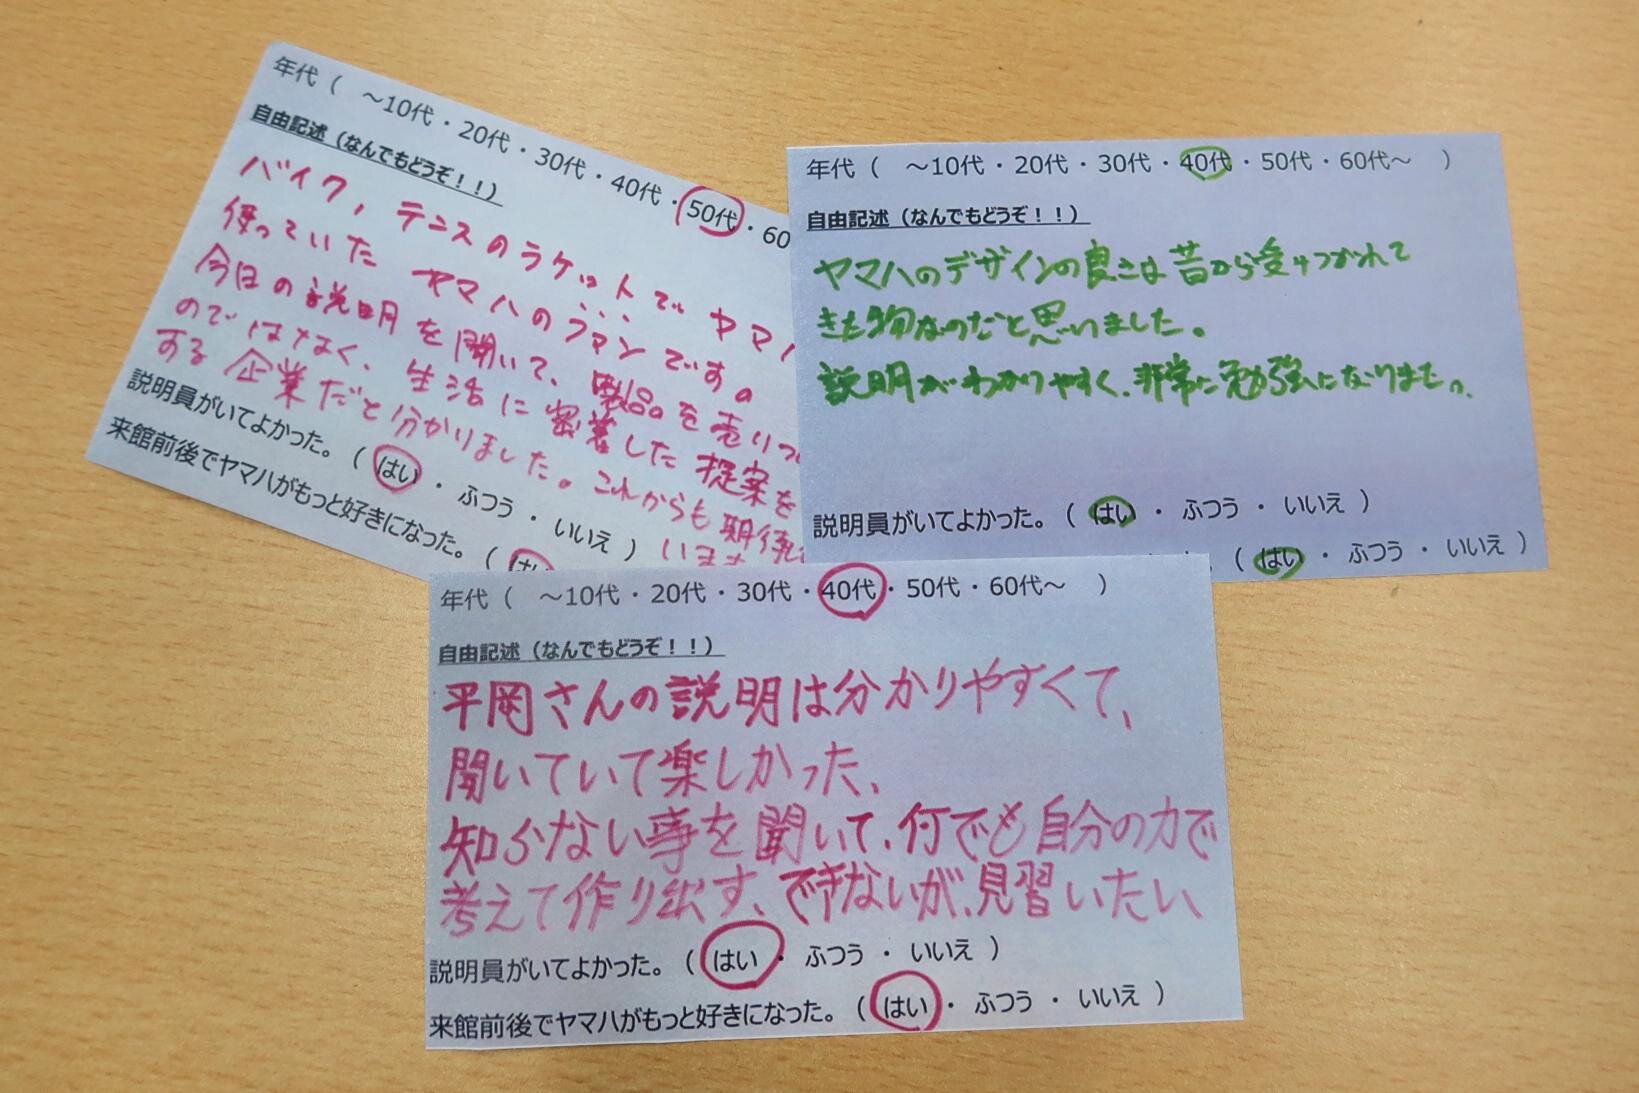 年代（　～10代・20代・30代・40代・50代・60
自由記述（なんでもどうぞ！！）
バイク, テニスのラケットで ヤマハ
使っていた ヤマハのファンです。
今日の説明を聞いて、製品を売りつ
のではなく、生活に密着した提案を
する企業だと分かりました。これからも期待して
います
説明員がいてよかった。（ はい ・ ふつう ・ いいえ ）
来館前後でヤマハがもっと好きになった。（ はい
年代（　～10代・20代・30代・40代・50代・60代～　）
自由記述（なんでもどうぞ！！）
ヤマハのデザインの良さは昔から受けつがれて
きた物なのだと思いました。
説明がわかりやすく、非常に勉強になりました。
説明員がいてよかった。（ はい ・ ふつう ・ いいえ ）
。（ はい ・ ふつう ・ いいえ ）
年代（　～10代・20代・30代・40代・50代・60代～　）
自由記述（なんでもどうぞ！！）
平岡さんの説明は分かりやすくて、
聞いていて楽しかった、
知らない事を聞いて、何でも自分の力で
考えて作り出す、できないが、見習いたい、
説明員がいてよかった。（ はい ・ ふつう ・ いいえ ）
来館前後でヤマハがもっと好きになった。（ はい ・ ふつう ・ いいえ ）